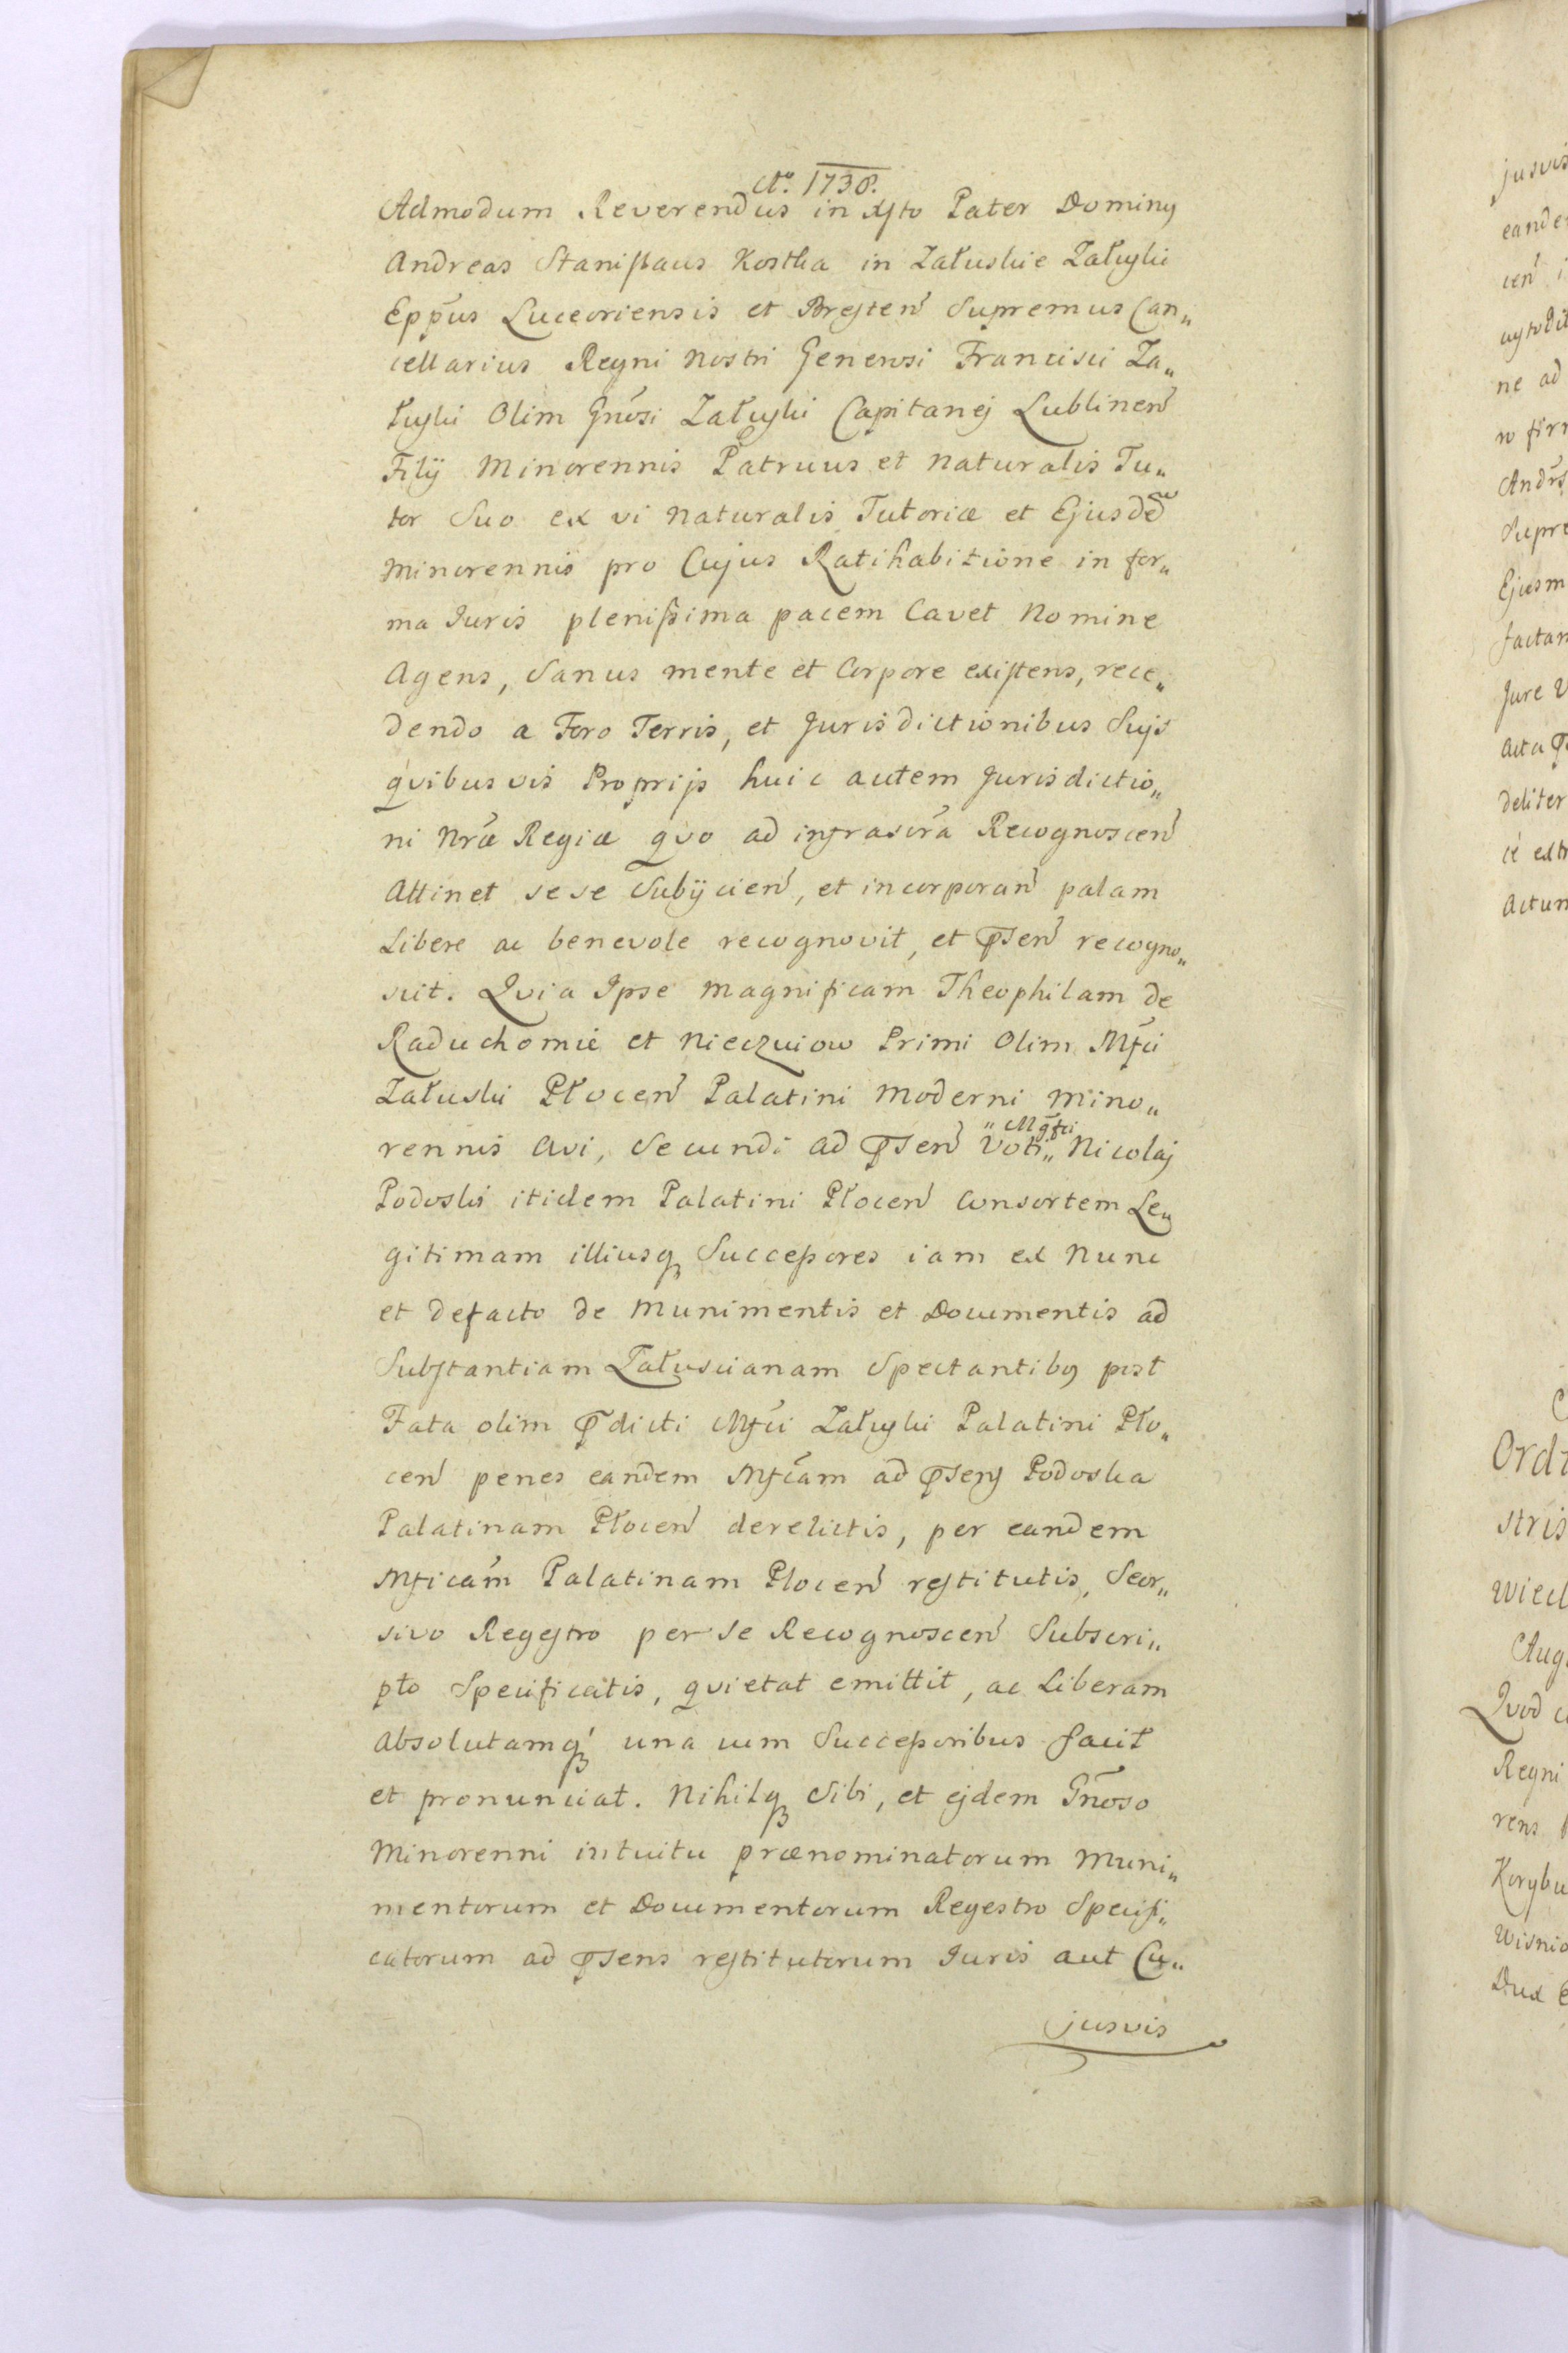 Ao. 1738.
Admodum Reverendus in Xsto Pater Dominus
Andreas Stanislaus Kostka in Załuskie Załuski
Eppūs Luceoriensis et Bresten Supremus Can„
cellarius Regni Nostri Generosi Francisci Za„
łuski Olim Gnōsi Załuski Capitanej Lublinen
Filij Minorennis Patruus et Naturalis Tu„
tor Suo ex vi Naturalis Tutoriæ et Ejusdē
Minorennis pro Cujus Ratihabitione in for„
ma Iuris plenissima pacem Cavet Nomine
Agens, Sanus mente et Corpore existens, rece„
dendo a Foro Terris, et Jurisdictionibus Suis
quibusvis Proprijs huic autem Jurisdictio„
ni Nræ Regiæ quo ad infrascra Recognoscen
Attinet sese Subijcien, et incorporan palam
Libere ac benevole recognovit, et Psen recogno„
scit. Qvia Ipse Magnificam Theophilam de
Raduchomie et Nieczuiow Primi Olim Mfci
Załuski Płocen Palatini Moderni Mino„
rennis Avi, Secundi ad Psen Voti „Mgfci„ Nicolaj
Podoski itidem Palatini Płocen Consortem Le„
gitimam illiusq Successores iam ex Nunc
et defacto de Munimentis et Documentis ad
Substantiam Załuscianam Spectantibus post
Fata olim Pdicti Mfci Załuski Palatini Pło„
cen penes eandem Mfcam ad Psens Podoska
Palatinam Płocen derelictis, per eandem
Mficam Palatinam Plocen restitutis, Seor„
sivo Regestro per Se Recognoscen Subscri„
pto Specificatis, quietat emittit, ac Liberam
Absolutamq una cum Successoribus facit
et pronunciat. Nihilq Sibi, et ejdem Gnōso
Minorenni intuitu prænominatorum Muni„
mentorum et Documentorum Regestro Specifi„
catorum ad Psens restitutorum Iuris aut Cu„
jusvis
jusvis
ne ad
Ejusm
Jure
deliter
stris
Regni
rens